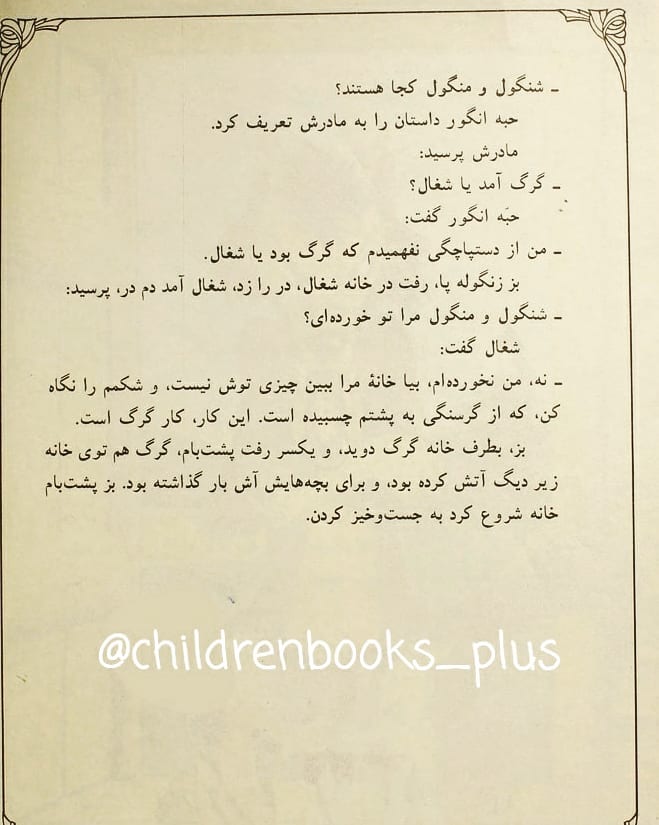 ـ شنگول و منگول کجا هستند؟
حبه انگور داستان را به مادرش تعریف کرد.
مادرش پرسید:
ـ گرگ آمد یا شغال؟
حبّه انگور گفت:
ـ من از دستپاچگی نفهمیدم که گرگ بود یا شغال.
بز زنگوله پا، رفت در خانه شغال، در را زد، شغال آمد دم در، پرسید:
ـ شنگول و منگول مرا تو خورده‌ای؟
شغال گفت:
ـ نه، من نخورده‌ام، بیا خانهٔ مرا ببین چیزی توش نیست، و شکمم را نگاه
کن، که از گرسنگی به پشتم چسبیده است. این کار، کار گرگ است.
بز، بطرف خانه گرگ دوید، و یکسر رفت پشت‌بام، گرگ هم توی خانه
زیر دیگ آتش کرده بود، و برای بچه‌هایش آش بار گذاشته بود. بز پشت‌بام
خانه شروع کرد به جست‌وخیز کردن.
@childrenbooks_plus